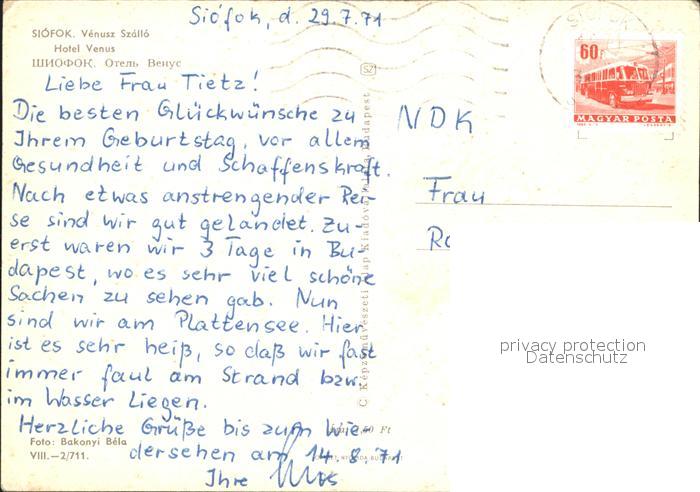 Siófok, d. 29.7.71
SIÓFOK. Vénusz Szálló
Hotel Venus
ШИОФОК. Отель Венус
Liebe Frau Tietz!
Die besten Glückwünsche zu
Ihrem Geburtstag, vor allem
Gesundheit und Schaffenskraft.
Nach etwas anstrengender Rei-
se sind wir gut gelandet. Zu-
erst waren wir 3 Tage in Bu-
dapest, wo es sehr viel schöne
Sachen zu sehen gab. Nun
sind wir am Plattensee. Hier
ist es sehr heiß, so daß wir fast
immer faul am Strand bzw.
im Wasser Liegen.
Herzliche Grüße bis zum Wie-
dersehen am 14.8.71
Ihre
Foto: Bakonyi Béla
VIII.—2/711.
SZ
Budapest
SIÓFOK
60f
MAGYAR POSTA
NDK
Frau
privacy protection
Datenschutz